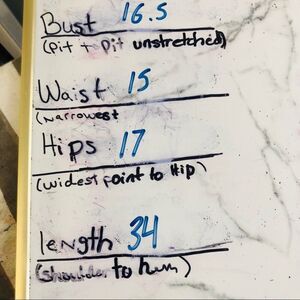 Bust 16.5
(pit + pit unstretched)
Waist 15
(narrowest
Hips 17
(widest point to Hip)
length 34
(shoulder to hem)